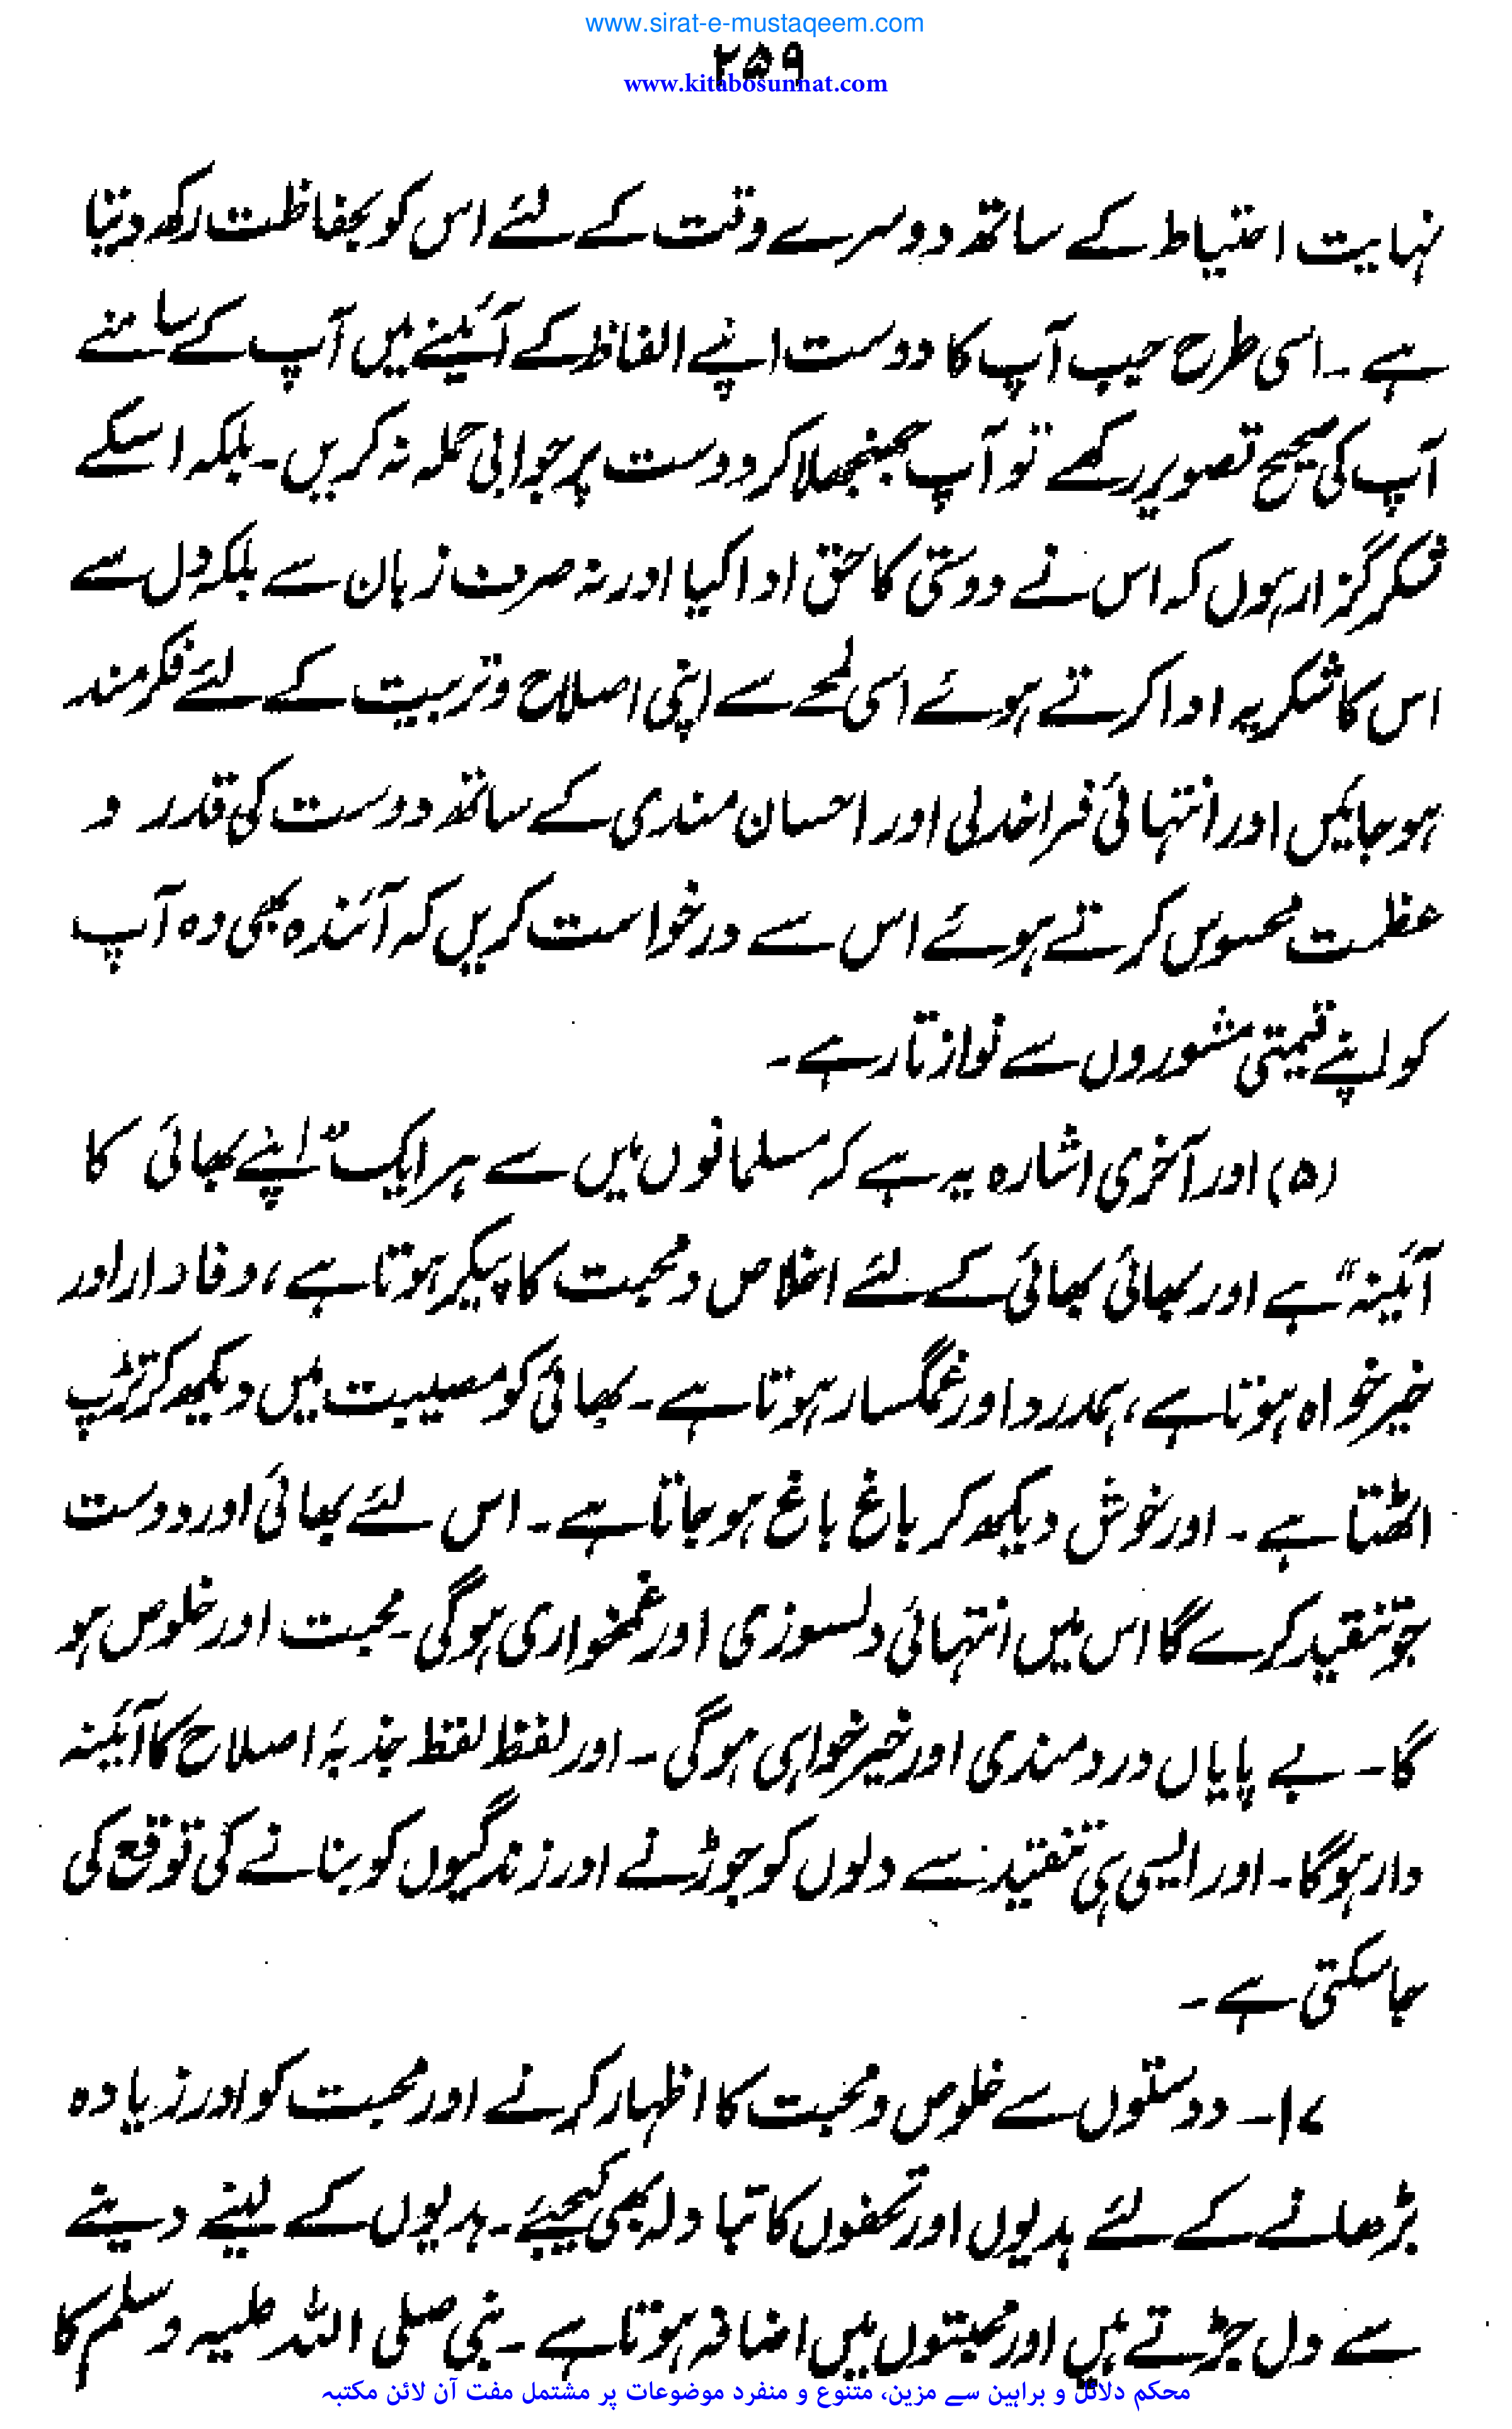 www.sirat-e-mustaqeem.com
۲۵۹
www.kitabosunnat.com
نہایت احتیاط کے ساتھ دوسرے وقت کے لئے اس کو بحفاظت رکھ دیتا
ہے ۔ اسی طرح جب آپ کا دوست اپنے الفاظ کے آئینے میں آپ کے سامنے
آپ کی صحیح تصویر رکھے تو آپ جھنجھلا کر دوست پر جوابی حملہ نہ کریں۔ بلکہ اسکے
شکر گزار ہوں کہ اس نے دوستی کا حق ادا کیا اور نہ صرف زبان سے بلکہ دل سے
اس کا شکریہ ادا کرتے ہوئے اسی لمحے سے اپنی اصلاح و تربیت کے لئے فکر مند
ہو جایئں اور انتہائی فراخدلی اور احسان مندی کے ساتھ دوست کی قدر و
عظمت محسوس کرتے ہوئے اس سے درخواست کریں کہ آئندہ بھی وہ آپ
کو اپنے قیمتی مشوروں سے نوازتا رہے ۔
(۵) اور آخری اشارہ یہ ہے کہ مسلمانوں میں سے ہر ایک ”اپنے بھائی کا
آئینہ“ ہے اور بھائی بھائی کے لئے اخلاص و محبت کا پیکر ہوتا ہے ، وفادار اور
خیر خواہ ہوتا ہے ، ہمدرد اور غمگسار ہوتا ہے ۔ بھائی کو مصیبت میں دیکھ کر تڑپ
اٹھتا ہے ۔ اور خوش دیکھ کر باغ باغ ہو جاتا ہے ۔ اس لئے بھائی اور دوست
جو تنقید کرے گا اس میں انتہائی دلسوزی اور غمخواری ہوگی ۔ محبت اور خلوص ہو
گا ۔ بے پایاں دردمندی اور خیر خواہی ہو گی ۔ اور لفظ لفظ جذبۂ اصلاح کا آئینہ
دار ہوگا ۔ اور ایسی ہی تنقید سے دلوں کو جوڑنے اور زندگیوں کو بنانے کی توقع کی
جاسکتی ہے ۔
۱۷۔ دوستوں سے خلوص و محبت کا اظہار کرنے اور محبت کو اور زیادہ
بڑھانے کے لئے ہدیوں اور تحفوں کا تبادلہ بھی کیجیئے ۔ ہدیوں کے لینے دینے
سے دل جڑتے ہیں اور محبتوں میں اضافہ ہوتا ہے ۔ نبی صلی اللہ علیہ وسلم کا
محکم دلائل و براہین سے مزین، متنوع و منفرد موضوعات پر مشتمل مفت آن لائن مکتبہ